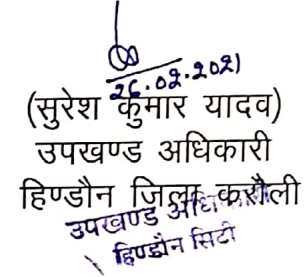 26.02.2021
(सुरेश कुमार यादव)
उपखण्ड अधिकारी
हिण्डौन जिला करौली
उपखण्ड अधिकारी
हिण्डौन सिटी